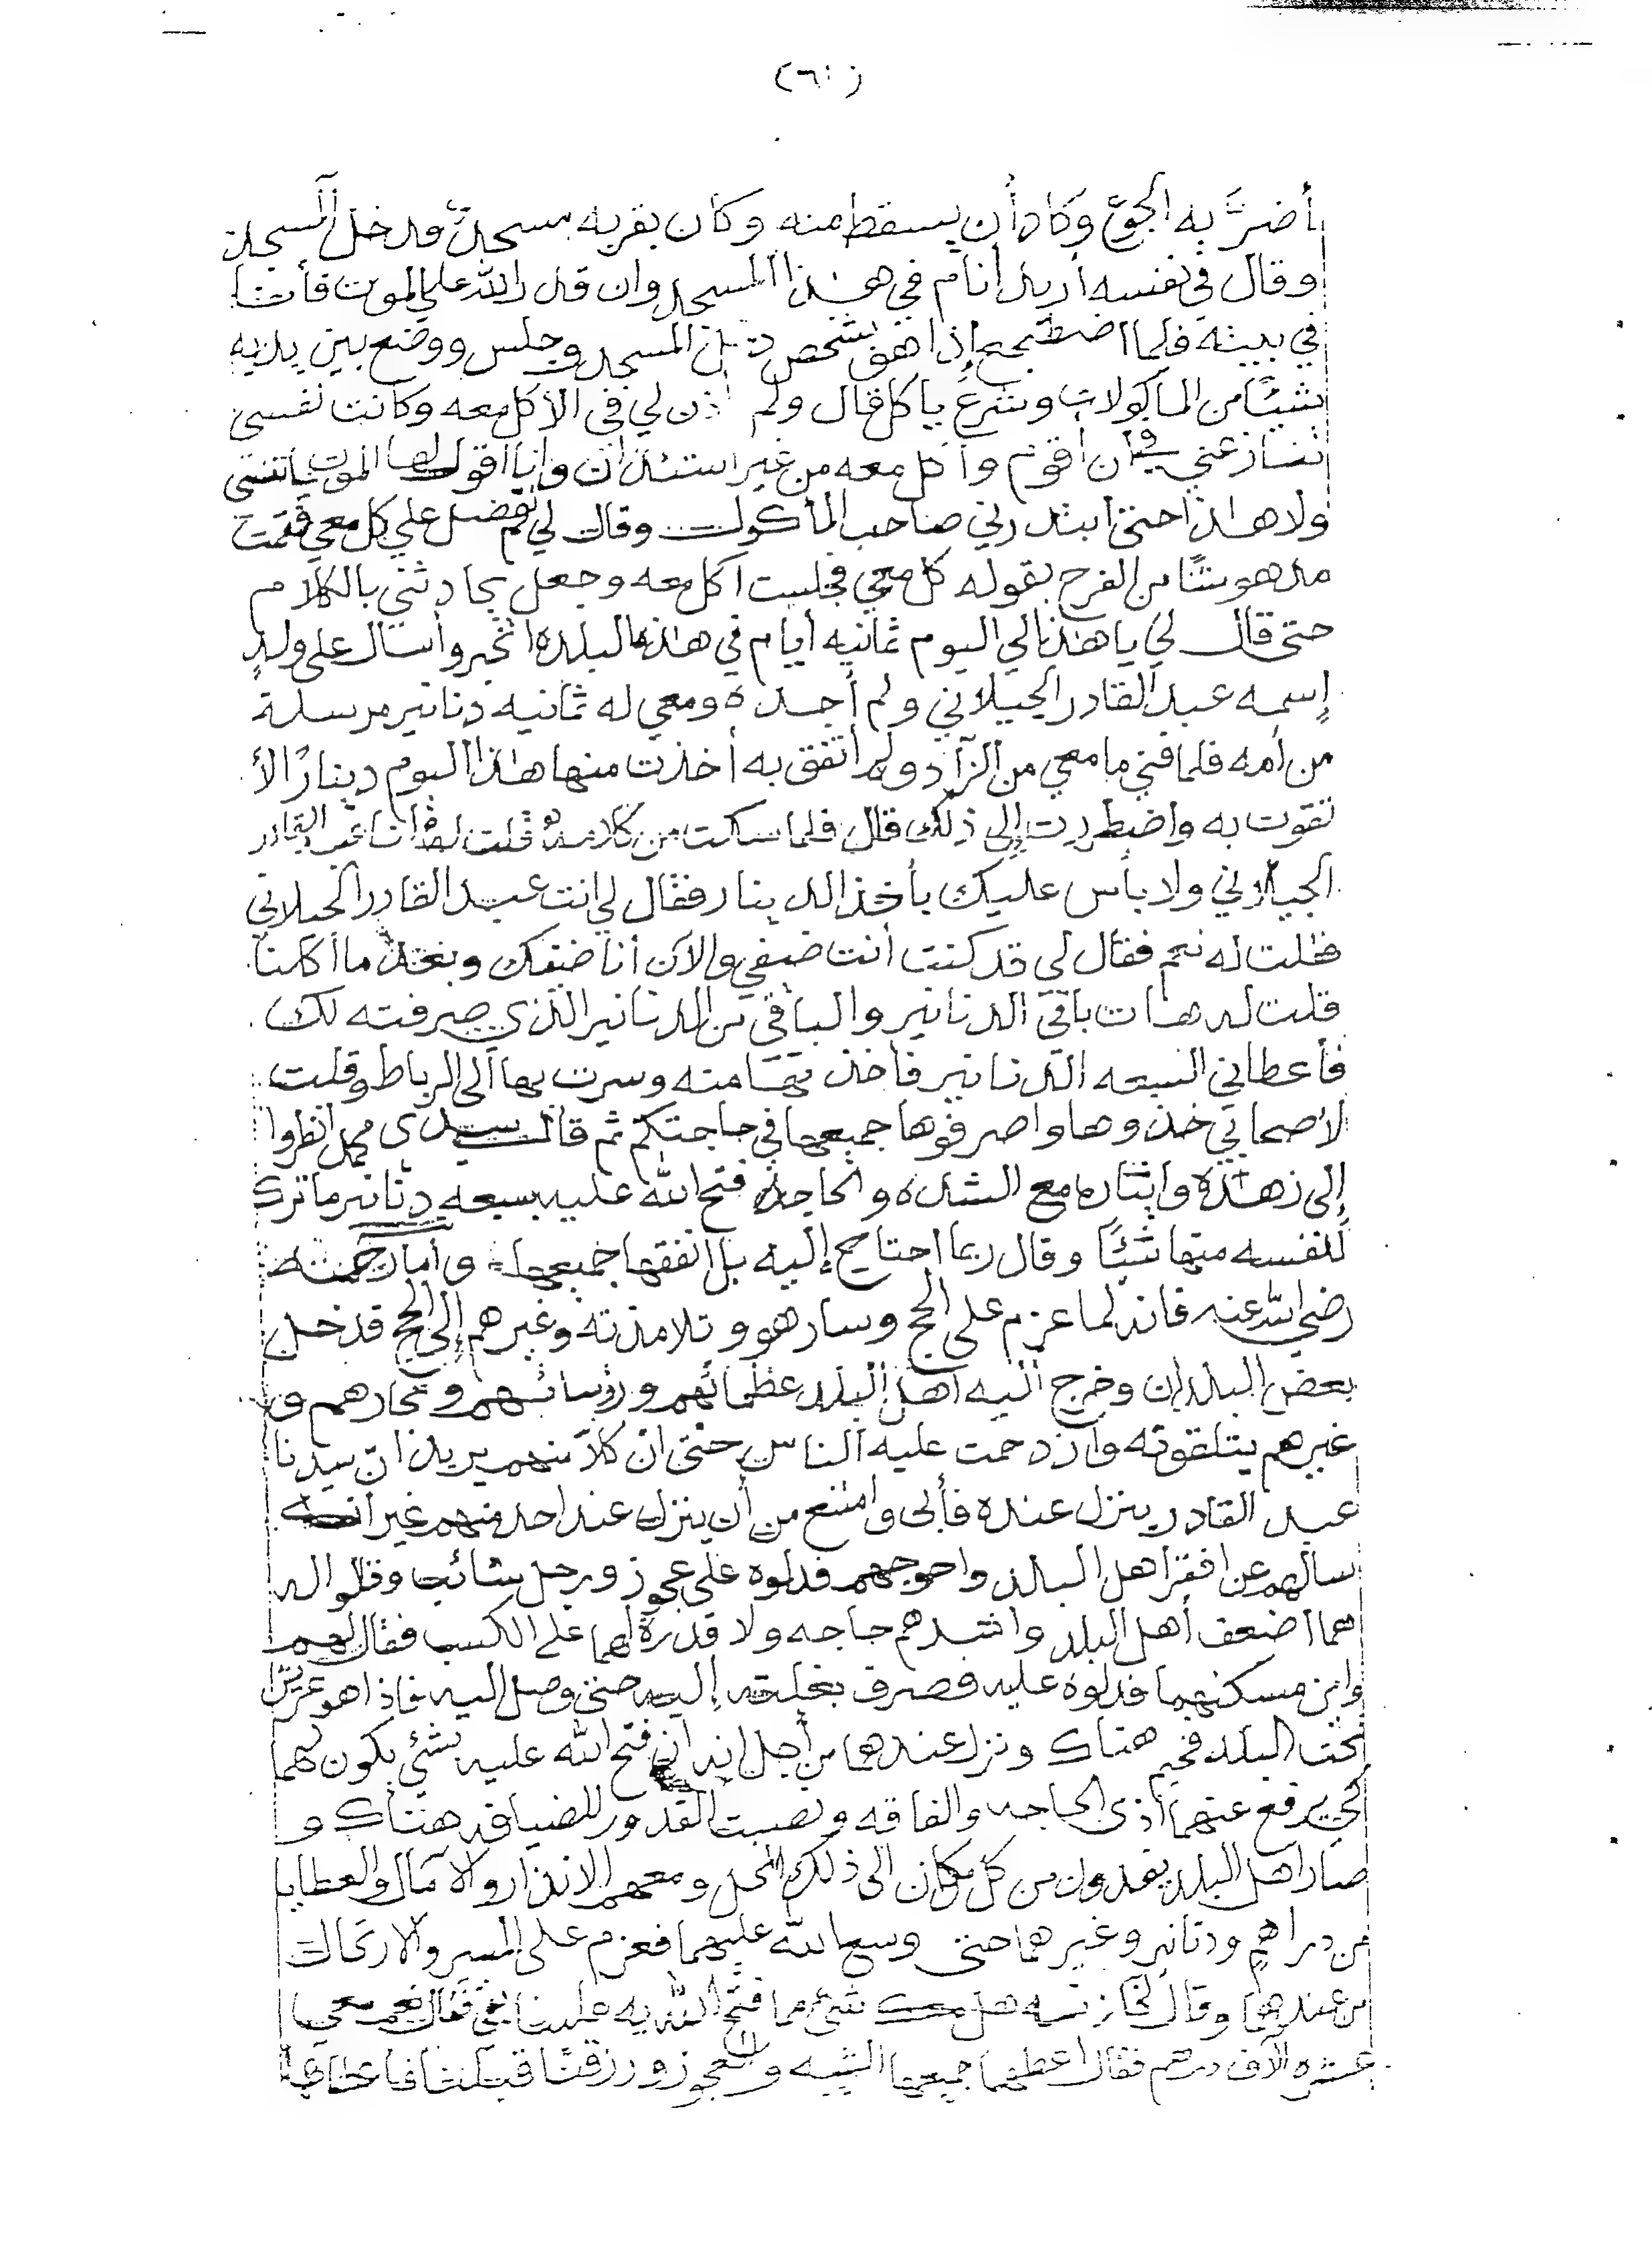 (٦٠)
أضرَّ به الجوع وكاد أن يسقط منه وكان بقربه مسجدٌ فدخل المسجد
وقال في نفسه أريد أنام في هذا المسجد وان قدر الله علي الموت فأنا
في بيته فلما اضطجع إذا هو بشخص دخل المسجد وجلس ووضع بين يديه
شيئًا من المأكولات وشرع يأكل قال ولم أذن لي في الأكل معه وكانت نفسي
تنازعني في أن أقوم وآكل معه من غير استئذان وأنا أقول لها الموت يا نفسي
ولا هذا حتى ابتدرني صاحب المأكول وقال لي قم تفضل علي كل معي فقمت
مدهوشًا من الفرح بقوله كل معي فجلست اكل معه وجعل يحادثني بالكلام
حتى قال لي يا هذا لي اليوم ثمانيه أيام في هذه البلده اتخبر وأسال على ولدٍ
إسمه عبد القادر الجيلاني ولم أجده ومعي له ثمانيه دنانير مرسلة
من أمه فلما فني ما معي من الزاد ولم أتفق به أخذت منها هذا اليوم دينارًا لأ
تقوت به واضطررت إلى ذلك قال فلما سكت من كلامه قلت له أنا عبد القادر
الجيلاني ولا بأس عليك بأخذ الدينار فقال لي انت عبد القادر الجيلاني
فقلت له نعم فقال لي قد كنت أنت ضيفي والآن أنا ضيفك وبعد ما أكلنا
قلت له هات باقي الدنانير والباقي من الدنانير الذي صرفته لك
فأعطاني السبعه الدنانير فأخذتها منه وسرت بها الى الرباط وقلت
لأصحابي خذوها واصرفوها جميعها في حاجتكم ثم قال سيدي محمد انظروا
إلى زهده وايثاره مع الشده والحاجه فتح الله عليه بسبعه دنانير ما ترك
لنفسه منها شيئًا وقال ربما احتاج إليه بل انفقها جميعها وأما رحمته
رضي الله عنه فانه لما عزم على الحج وسار هو وتلامذته وغيرهم إلى الحج قد خل
بعض البلدان وخرج اليه أهل البلد عظمائهم ورؤسائهم وتجارهم و
غيرهم يتلقونه وازدحمت عليه الناس حتى انّ كلاّ منهم يريد انّ سيدنا
عبد القادر ينزل عنده فأبى وامتنع من أن ينزل عند احد منهم غير انه
سالهم عن افقر اهل البلد واحوجهم فدلوه على عجوز ورجل شائب وقالوا له
هما اضعف أهل البلد واشدهم حاجه ولا قدرة لهما على الكسب فقال لهم
واين مسكنهما فدلوه عليه فصرف بغلته إليه حتى وصل اليه فاذا هو عريش
تحت البلد فخيم هناك ونزل عندهما من أجل انه ان فتح الله عليه بشئ يكون لهما
لكي يرفع عنهما أذى الحاجه والفاقه ونصبت القدور للضيافه هناك و
صار اهل البلد يفدون من كل مكان الى ذلك المحل ومعهم الانذار والامال والعطايا
من دراهم ودنانير وغيرهما حتى وسع الله عليهما فعزم على السير والارتحال
من عندهما وقال لخازنه هل معك شئ مما فتح الله به علينا فقال نعم معي
عشره آلاف درهم فقال اعطهما جميعها الشيبه والعجوز ورزقنا قبلتنا فأعطاها